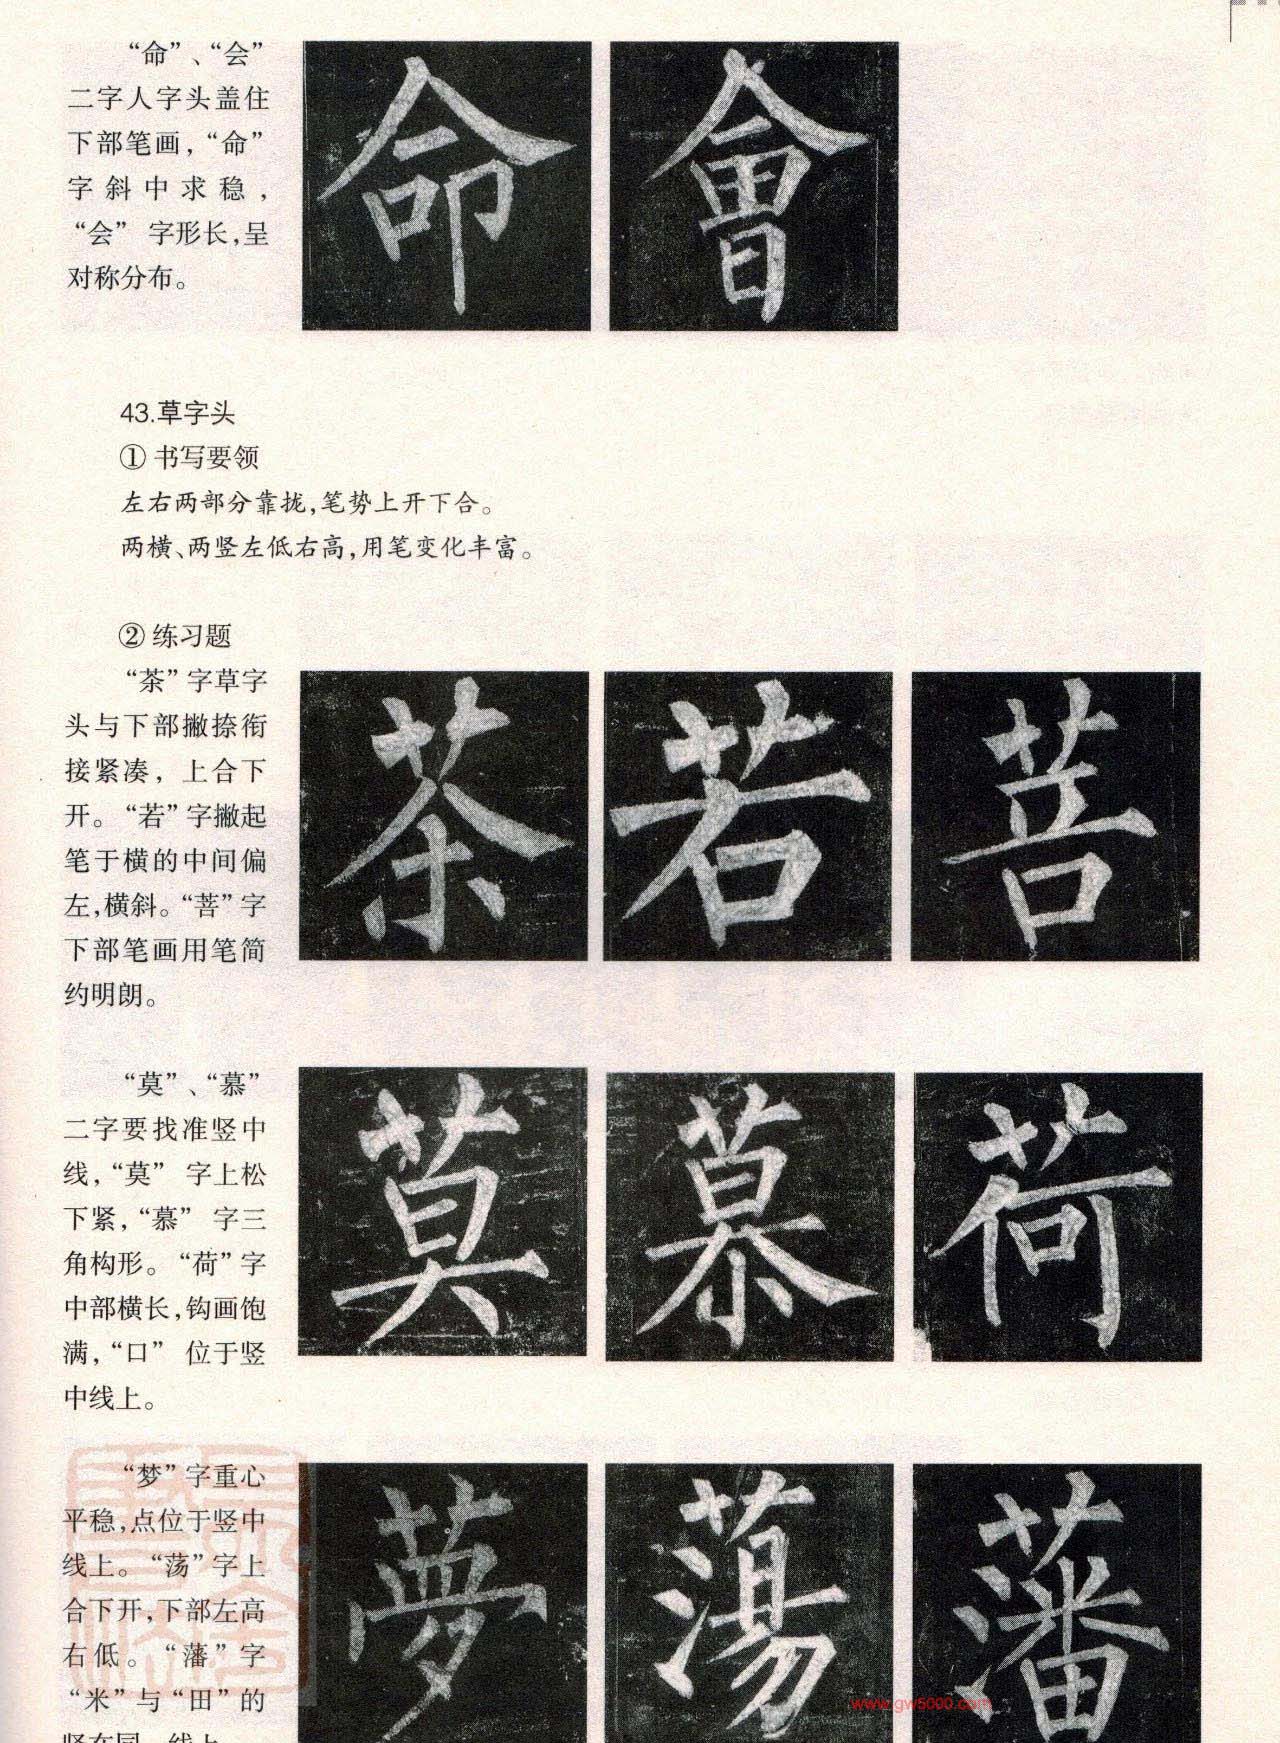 “命”、“会”
二字人字头盖住
下部笔画，“命”
字斜中求稳，
“会”字形长，呈
对称分布。
命 會
43.草字头
① 书写要领
左右两部分靠拢，笔势上开下合。
两横、两竖左低右高，用笔变化丰富。
② 练习题
“茶”字草字
头与下部撇捺衔
接紧凑，上合下
开。“若”字撇起
笔于横的中间偏
左，横斜。“菩”字
下部笔画用笔简
约明朗。
茶 若 菩
“莫”、“慕”
二字要找准竖中
线，“莫”字上松
下紧，“慕”字三
角构形。“荷”字
中部横长，钩画饱
满，“口”位于竖
中线上。
莫 慕 荷
“梦”字重心
平稳，点位于竖中
线上。“荡”字上
合下开，下部左高
右低。“藩”字
“米”与“田”的
竖在同一线上
夢 蕩 藩
www.gw5000.com